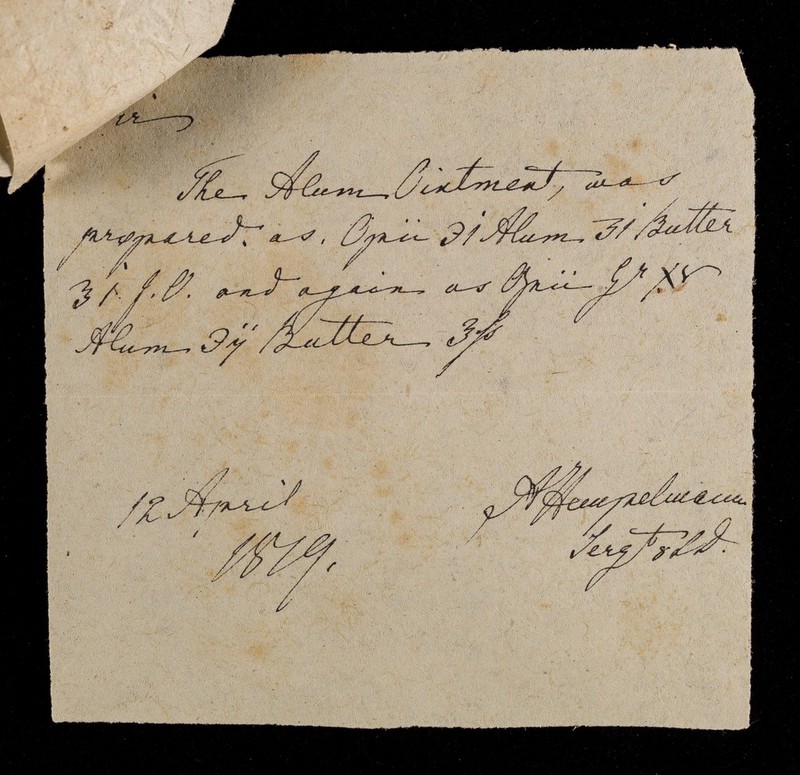 ir
The Alum Ointment, was
prepared. as. Opii ℈i Alum ʒi Butter
ʒi J.O. and again as Opii Gr XV
Alum ℈ij Butter ʒſs
12 April
1819.
A Hempelmann
Sergt 8 LD.